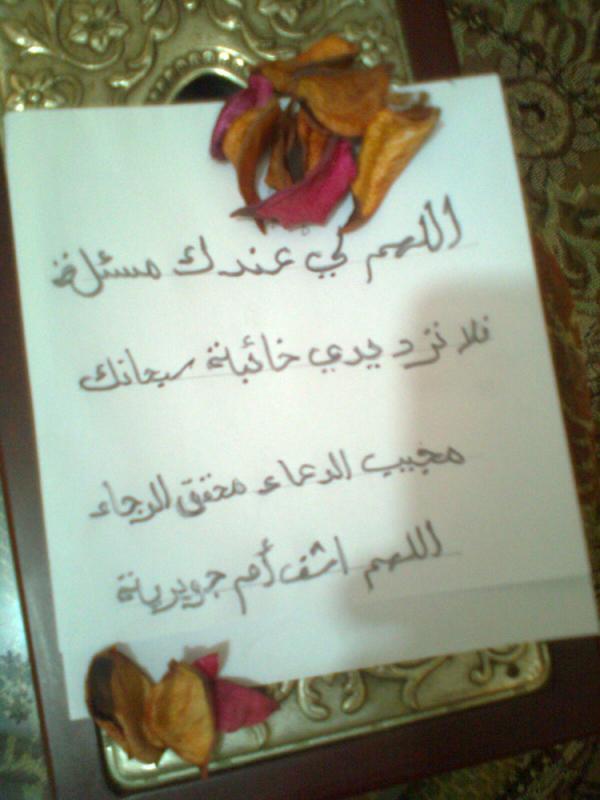 اللهم لي عندك مسئلة
فلا ترد يدي خائبة سبحانك
مجيب الدعاء محقق الرجاء
اللهم اشف أم جويرية